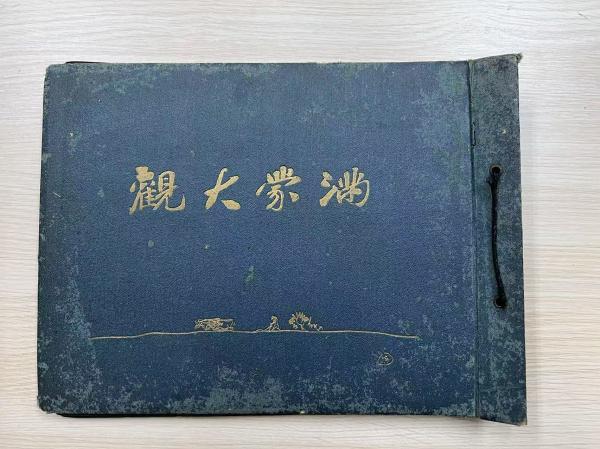 滿蒙大觀